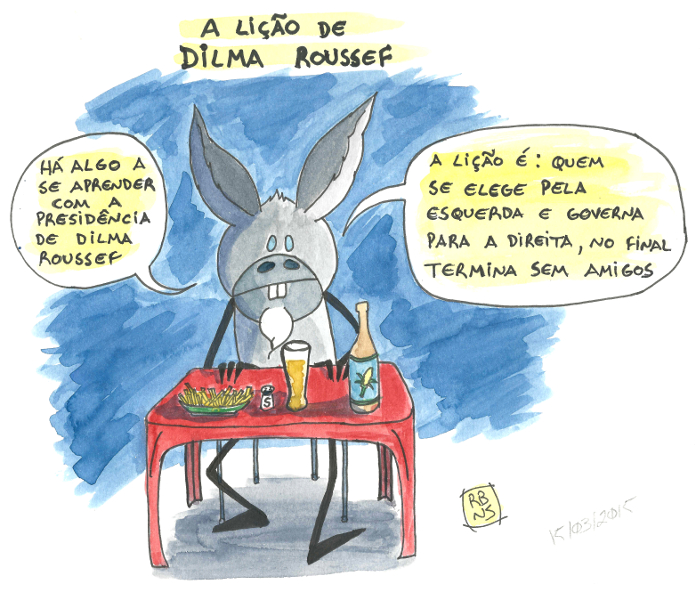 A LIÇÃO DE
DILMA ROUSSEF
HÁ ALGO A
SE APRENDER
COM A
PRESIDÊNCIA
DE DILMA
ROUSSEF
A LIÇÃO É: QUEM
SE ELEGE PELA
ESQUERDA E GOVERNA
PARA A DIREITA, NO FINAL
TERMINA SEM AMIGOS
S
RB
NS
15/03/2015